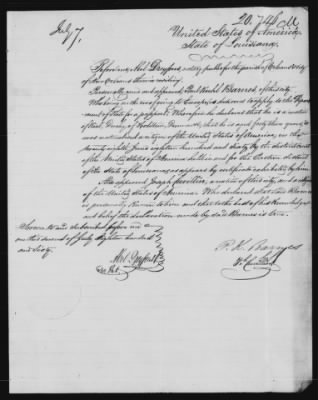 July 7,
20.746
United States of America,
State of Louisiana,
Before me, Abel Dreyfous, a notary public for the parish of Orleans and city
of New Orleans therein residing
Personally came and appeared, Paul Barnes, of this city
Who being on the eve of going to Europe has desired me to apply to the Depart-
ment of State for a passport. Wherefore he declares that he is a native
of Denmark, that he is and forty three years, he
was naturalised a citizen of the United States of America, on the
twenty eighth June eighteen hundred and sixty by the district court
of the United States of America in and for the Eastern district
of the State of Louisiana as appears by certificate exhibited by him.
Also appeared Joseph of this city and a citizen
of the United States of America. Who declared also that Barnes
is personally known to him and that to the best of his knowledge
and belief the declaration made by said Barnes is true.
Sworn to and subscribed before me
on this second of July Eighteen hundred
and Sixty.
Abel Dreyfous
Not. Pub.
P. K. Barnes